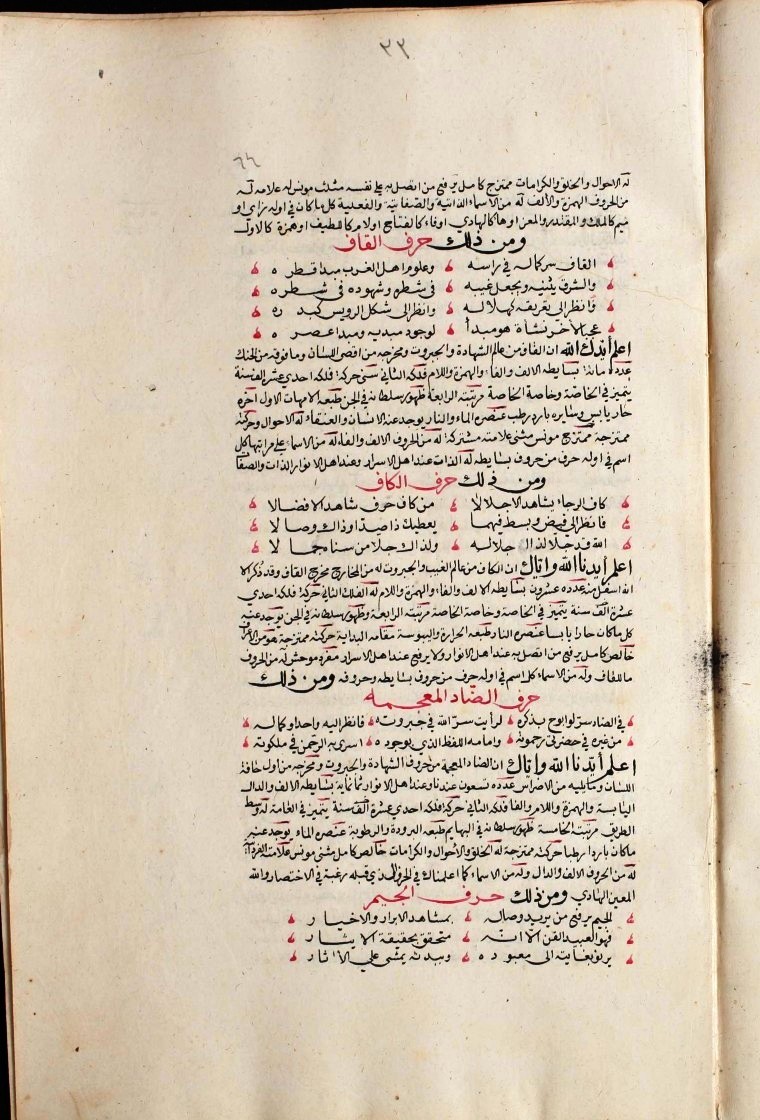 ٣٢
٦٦
له الاحوال والخلق والكرامات ممتزج كامل يرفع من اتصل به على نفسه مثلث مونس له علامه له
من الحروف الهمزة والألف له من الاسماء الذاتية والصفاتية والفعلية كل ما كان في اوله زاي او
ميم كالملك والمقتدر والمعز او هاء كالهادي او فاء كالفتاح او لام كاللطيف او همزة كالاول
ومن ذلك حرف القاف
القاف سر كماله في راسه وعلوم اهل الغرب مبدا قطره
والشرق يثنيه ويجعل غيبه في شطره وشهوده في شطره
وانظر الي تعريقه كهلاله وانظر الى شكل الرويس كبدره
عجبا لآخر نشأة هو مبدأ لوجود مبديه ومبدا عصره
اعلم أيدك الله ان القاف من عالم الشهادة والجبروت ومخرجه من اقصى اللسان وما فوقه من الحنك
عدده مائة بسايطه الالف والفاء والهمزة واللام فلكه الثاني سني حركة فلكه احدي عشر الف سنة
يتميز في الخاصة وخاصة الخاصة مرتبته الرابعة ظهور سلطانه في الجن طبعه الامهات الاول اخره
حار يابس وسايره بارد رطب عنصره الماء والنار يوجد عنه الانسان والعنقاء له الاحوال وحركته
ممتزجة ممتزج مونس مثني علامته مشتركة له من الحروف الالف والفاء وله من الاسماء علي مراتبها كل
اسم في اوله حرف من حروف بسايطه له الذات عند اهل الاسرار وعند اهل الانوار الذات والصفات
ومن ذلك حرف الكاف
كاف الرجاء يشاهد الاجلالا من كاف حرف شاهد الافضالا
فانظر الي قبض وبسط فيهما يعطيك ذا صدا وذاك وصالا
الله قد جلا لذا اجلاله ولذاك جلا من سناه جمالا
اعلم أيدنا الله واياك ان الكاف من عالم الغيب والجبروت له من المخارج مخرج القاف وقد ذكر الا
انه اسفل منه عدده عشرون بسايطه الالف والفاء والهمزة واللام له الفلك الثاني حركة فلكه احدي
عشرة الف سنة يتميز في الخاصة وخاصة الخاصة مرتبته الرابعة وظهور سلطانه في الجن يوجد عنه
كل ما كان حارا يابسا عنصره النار طبعه الحرارة واليبوسة مقامه البداية حركته ممتزجة هو من الاعراف
خالص كامل يرفع من اتصل به عند اهل الانوار ولا يرفع عند اهل الاسرار مفرد موحش له من الحروف
ما للقاف وله من الاسماء كل اسم في اوله حرف من حروف بسايطه وحروفه ومن ذلك
حرف الضاد المعجمه
في الضاد سر لو ابوح بذكره لرأيت سر الله في جبروته فانظر اليه واحدا وكماله
من غيره في حضرتي رحموته وامامه اللفظ الذي بوجوده اسري به الرحمن في ملكوته
اعلم أيدنا الله واياك ان الضاد المعجمة من حروف الشهادة والجبروت ومخرجه من اول حافة
اللسان وما يليه من الاضراس عدده تسعون عندنا وعند اهل الانوار ثمانماية بسايطه الالف والدال
اليابسة والهمزة واللام والفا فلكه الثاني حركة فلكه احدي عشرة الف سنة يتميز في العامة له وسط
الطريق مرتبته الخامسة ظهور سلطانه في البهايم طبعه البرودة والرطوبة عنصره الماء يوجد عنه
ما كان باردا رطبا حركته ممتزجة له الخلق والاحوال والكرامات خالص كامل مثني مونس علامته الفردانية
له من الحروف الالف والدال وله من الاسماء كما اعلمناك في الحرف الذي قبله رغبة في الاختصار والله
المعين الهادي ومن ذلك حرف الجيم
الجيم يرفع من يريد وصاله بمشاهد الابرار والاخيار
فهو العبيد القن الا انه متحقق بحقيقة الايثار
يرنو بغايته الى معبوده وببدئه يمشي علي الاثار